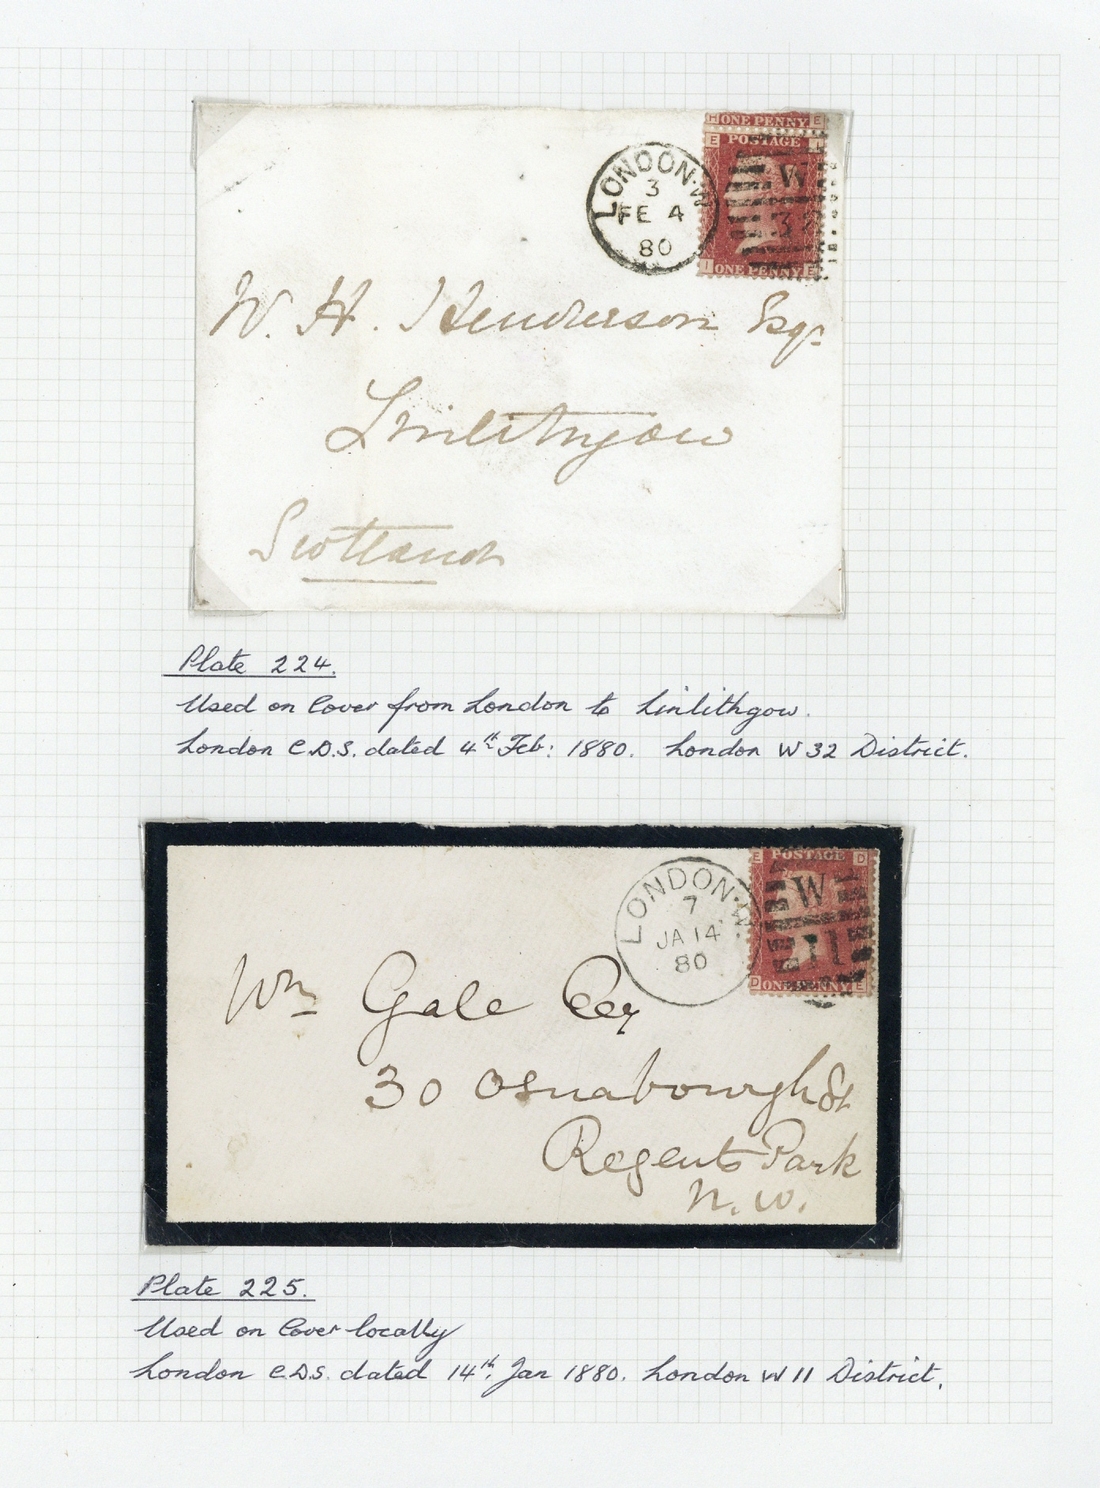 H ONE PENNY E
E POSTAGE I
LONDON·W
3
FE 4
80
W
32
I ONE PENNY E
W. H. Henderson Esqr
Linlithgow
Scotland
Plate 224.
Used on Cover from London to Linlithgow.
London C.D.S. dated 4th Feb: 1880. London W 32 District.
E POSTAGE D
LONDON·W
7
JA 14
80
W
11
D ONE PENNY E
Wm Gale Esq
30 Osnabourgh St
Regents Park
N.W.
Plate 225.
Used on Cover locally
London C.D.S. dated 14th Jan 1880. London W 11 District.